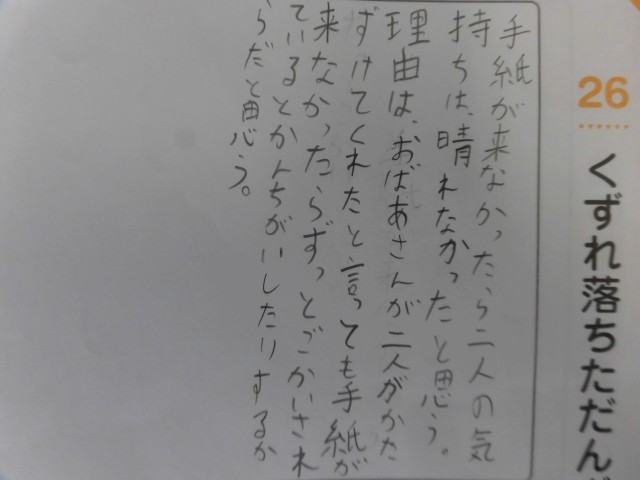 26
くずれ落ちただん
手紙が来なかったら二人の気
持ちは、晴れなかったと思う。
理由は、おばあさんが二人がかた
ずけてくれたと言っても手紙が
来なかったらずっとごかいされ
ているとかんちがいしたりするか
らだと思う。